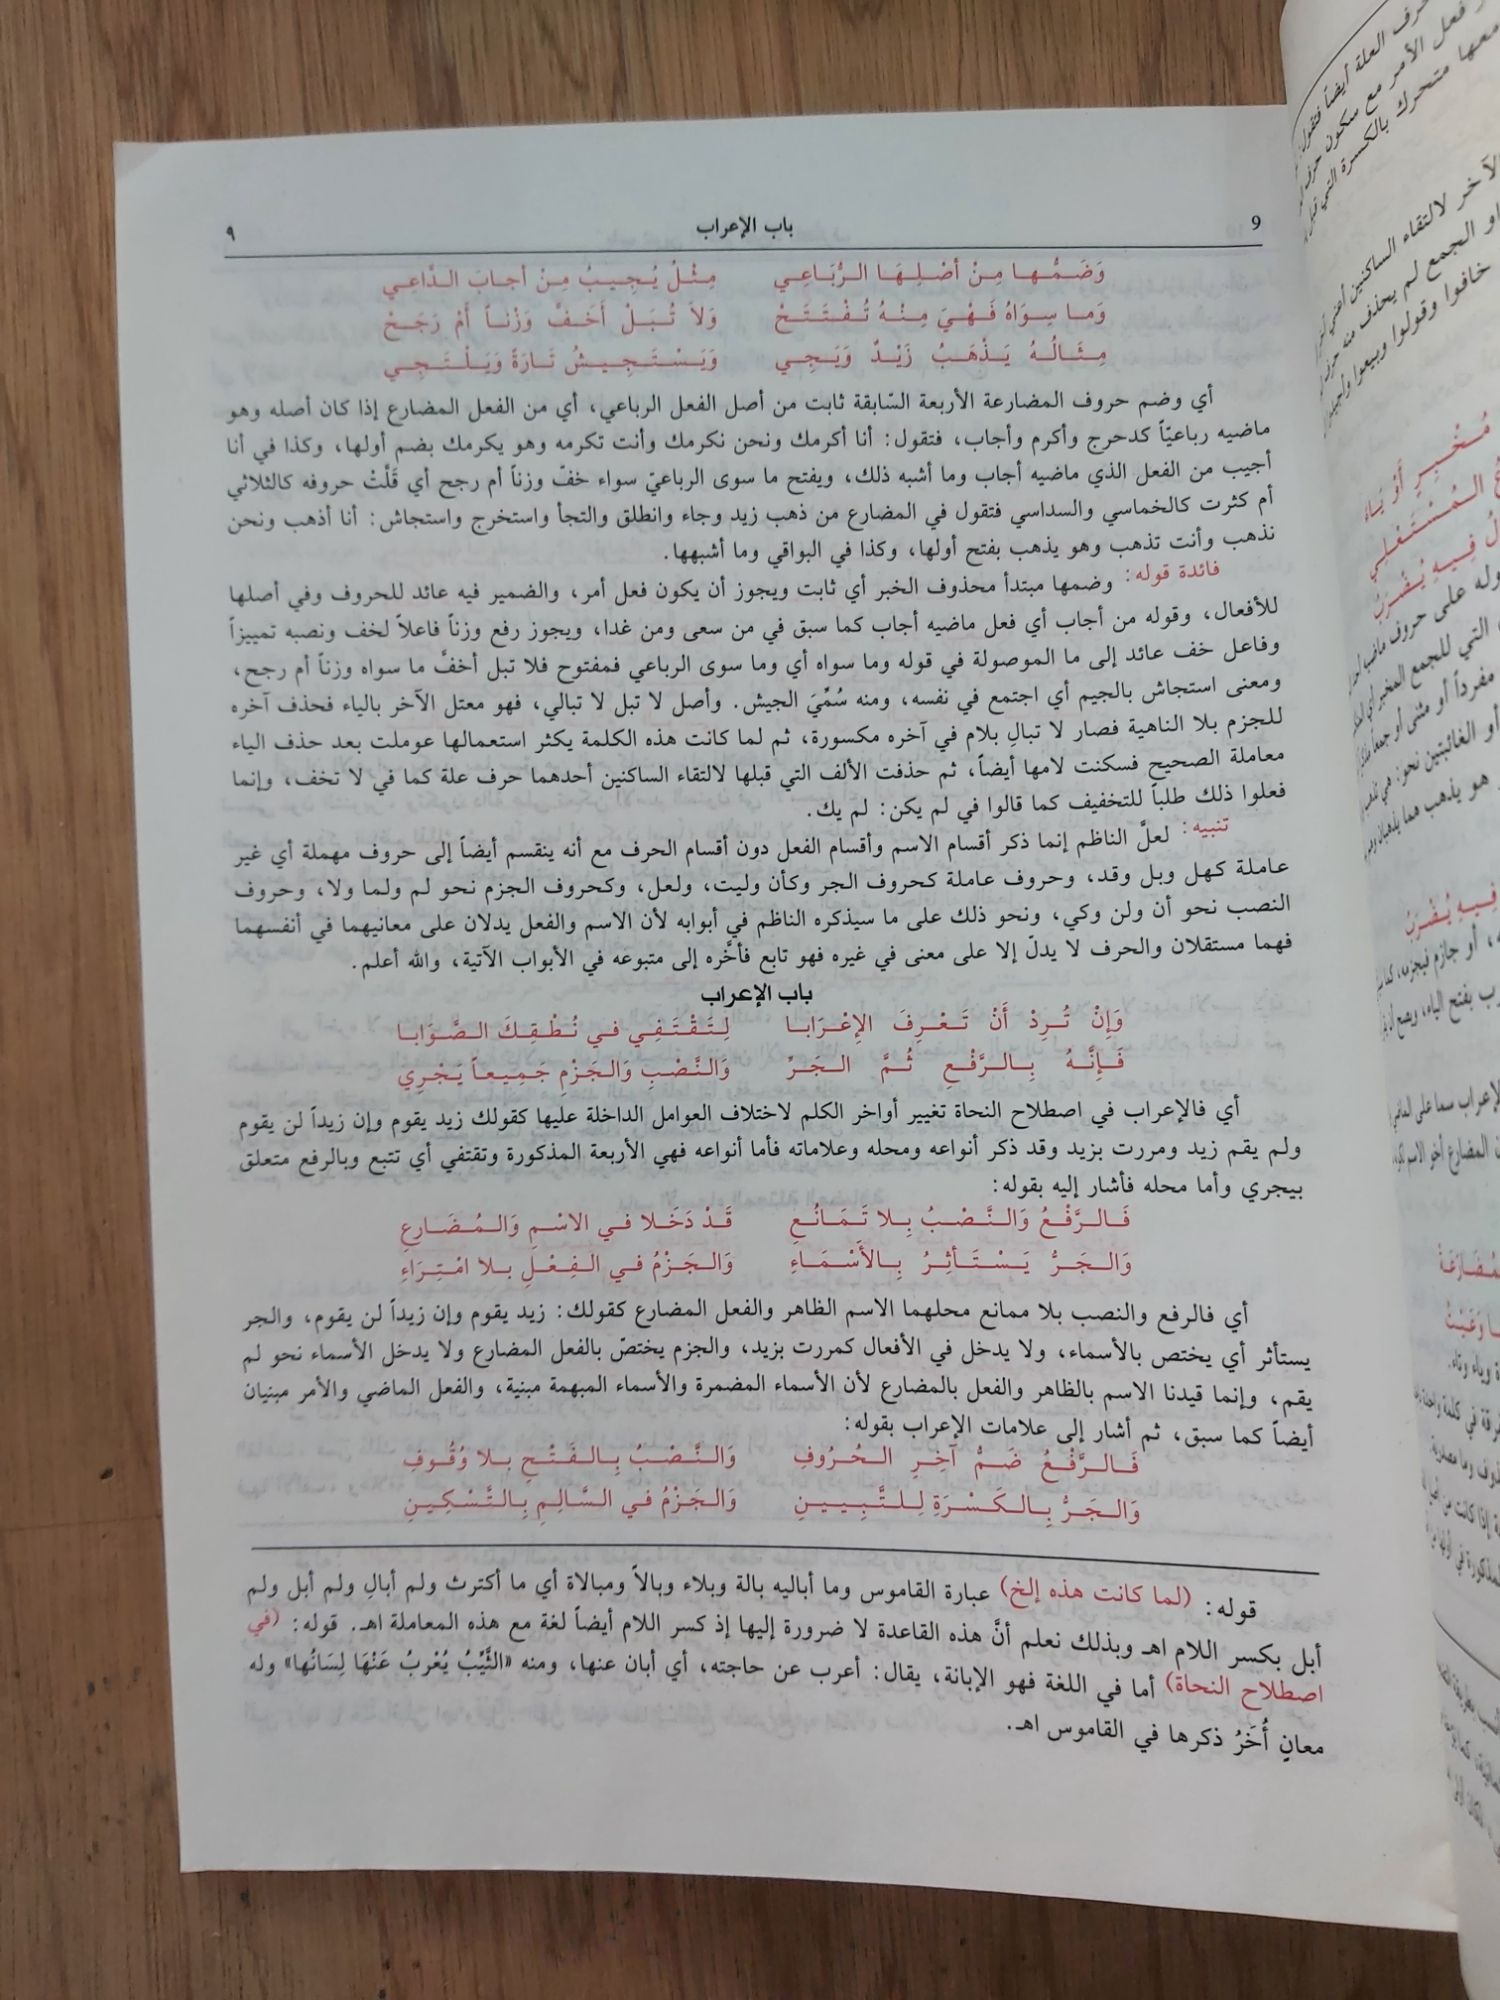 9 باب الإعراب ٩
وَضَمُّها مِنْ أصْلِهَا الرُّبَاعِي مِثْلُ يُجِيبُ مِنْ أجابَ الدَّاعِي
وَما سِوَاهُ فَهْيَ مِنْهُ تُفْتَتَحْ وَلاَ تُبَلْ أَخَفَّ وَزْناً أَمْ رَجَحْ
مِثَالُهُ يَذْهَبُ زَيْدٌ وَيَجِي وَيَسْتَجِيشُ تَارَةً وَيَلْتَجِي
أي وضم حروف المضارعة الأربعة السّابقة ثابت من أصل الفعل الرباعي، أي من الفعل المضارع إذا كان أصله وهو
ماضيه رباعيّاً كدحرج وأكرم وأجاب، فتقول: أنا أكرمك ونحن نكرمك وأنت تكرمه وهو يكرمك بضم أولها، وكذا في أنا
أجيب من الفعل الذي ماضيه أجاب وما أشبه ذلك، ويفتح ما سوى الرباعيّ سواء خفّ وزناً أم رجح أي قَلَّتْ حروفه كالثلاثي
أم كثرت كالخماسي والسداسي فتقول في المضارع من ذهب زيد وجاء وانطلق والتجأ واستخرج واستجاش: أنا أذهب ونحن
نذهب وأنت تذهب وهو يذهب بفتح أولها، وكذا في البواقي وما أشبهها.
فائدة قوله: وضمها مبتدأ محذوف الخبر أي ثابت ويجوز أن يكون فعل أمر، والضمير فيه عائد للحروف وفي أصلها
للأفعال، وقوله من أجاب أي فعل ماضيه أجاب كما سبق في من سعى ومن غدا، ويجوز رفع وزناً فاعلاً لخف ونصبه تمييزاً
وفاعل خف عائد إلى ما الموصولة في قوله وما سواه أي وما سوى الرباعي فمفتوح فلا تبل أخفَّ ما سواه وزناً أم رجح،
ومعنى استجاش بالجيم أي اجتمع في نفسه، ومنه سُمِّيَ الجيش. وأصل لا تبل لا تبالي، فهو معتل الآخر بالياء فحذف آخره
للجزم بلا الناهية فصار لا تبالِ بلام في آخره مكسورة، ثم لما كانت هذه الكلمة يكثر استعمالها عوملت بعد حذف الياء
معاملة الصحيح فسكنت لامها أيضاً، ثم حذفت الألف التي قبلها لالتقاء الساكنين أحدهما حرف علة كما في لا تخف، وإنما
فعلوا ذلك طلباً للتخفيف كما قالوا في لم يكن: لم يك.
تنبيه: لعلَّ الناظم إنما ذكر أقسام الاسم وأقسام الفعل دون أقسام الحرف مع أنه ينقسم أيضاً إلى حروف مهملة أي غير
عاملة كهل وبل وقد، وحروف عاملة كحروف الجر وكأن وليت، ولعل، وكحروف الجزم نحو لم ولما ولا، وحروف
النصب نحو أن ولن وكي، ونحو ذلك على ما سيذكره الناظم في أبوابه لأن الاسم والفعل يدلان على معانيهما في أنفسهما
فهما مستقلان والحرف لا يدلّ إلا على معنى في غيره فهو تابع فأخَّره إلى متبوعه في الأبواب الآتية، والله أعلم.
باب الإعراب
وَإِنْ تُرِدْ أَنْ تَعْرِفَ الإعْرَابا لِتَقْتَفِي في نُطْقِكَ الصَّوَابا
فَإِنَّهُ بِالرَّفْعِ ثُمَّ الجَرِّ وَالنَّصْبِ وَالجَزْمِ جَمِيعاً يَجْرِي
أي فالإعراب في اصطلاح النحاة تغيير أواخر الكلم لاختلاف العوامل الداخلة عليها كقولك زيد يقوم وإن زيداً لن يقوم
ولم يقم زيد ومررت بزيد وقد ذكر أنواعه ومحله وعلاماته فأما أنواعه فهي الأربعة المذكورة وتقتفي أي تتبع وبالرفع متعلق
بيجري وأما محله فأشار إليه بقوله:
فَالرَّفْعُ وَالنَّصْبُ بِلا تَمَانُعِ قَدْ دَخَلا في الاسْمِ وَالمُضَارِعِ
وَالجَرُّ يَسْتَأثِرُ بِالأَسْمَاءِ وَالجَزْمُ في الفِعْلِ بلا امْتِرَاءِ
أي فالرفع والنصب بلا ممانع محلهما الاسم الظاهر والفعل المضارع كقولك: زيد يقوم وإن زيداً لن يقوم، والجر
يستأثر أي يختص بالأسماء، ولا يدخل في الأفعال كمررت بزيد، والجزم يختصّ بالفعل المضارع ولا يدخل الأسماء نحو لم
يقم، وإنما قيدنا الاسم بالظاهر والفعل بالمضارع لأن الأسماء المضمرة والأسماء المبهمة مبنية، والفعل الماضي والأمر مبنيان
أيضاً كما سبق، ثم أشار إلى علامات الإعراب بقوله:
فَالرَّفْعُ ضَمُّ آخِرِ الحُرُوفِ وَالنَّصْبُ بِالفَتْحِ بلا وُقُوفِ
وَالجَرُّ بِالكَسْرَةِ لِلتَّبِيينِ وَالجَزْمُ في السَّالِمِ بِالتَّسْكِينِ
قوله: (لما كانت هذه إلخ) عبارة القاموس وما أباليه بالة وبلاء وبالاً ومبالاة أي ما أكترث ولم أبالِ ولم أبل ولم
أبل بكسر اللام اهـ وبذلك نعلم أنَّ هذه القاعدة لا ضرورة إليها إذ كسر اللام أيضاً لغة مع هذه المعاملة اهـ. قوله: (في
اصطلاح النحاة) أما في اللغة فهو الإبانة، يقال: أعرب عن حاجته، أي أبان عنها، ومنه «الثَّيِّبُ يُعْربُ عَنْهَا لِسَانُها» وله
معانٍ أُخَرُ ذكرها في القاموس اهـ.